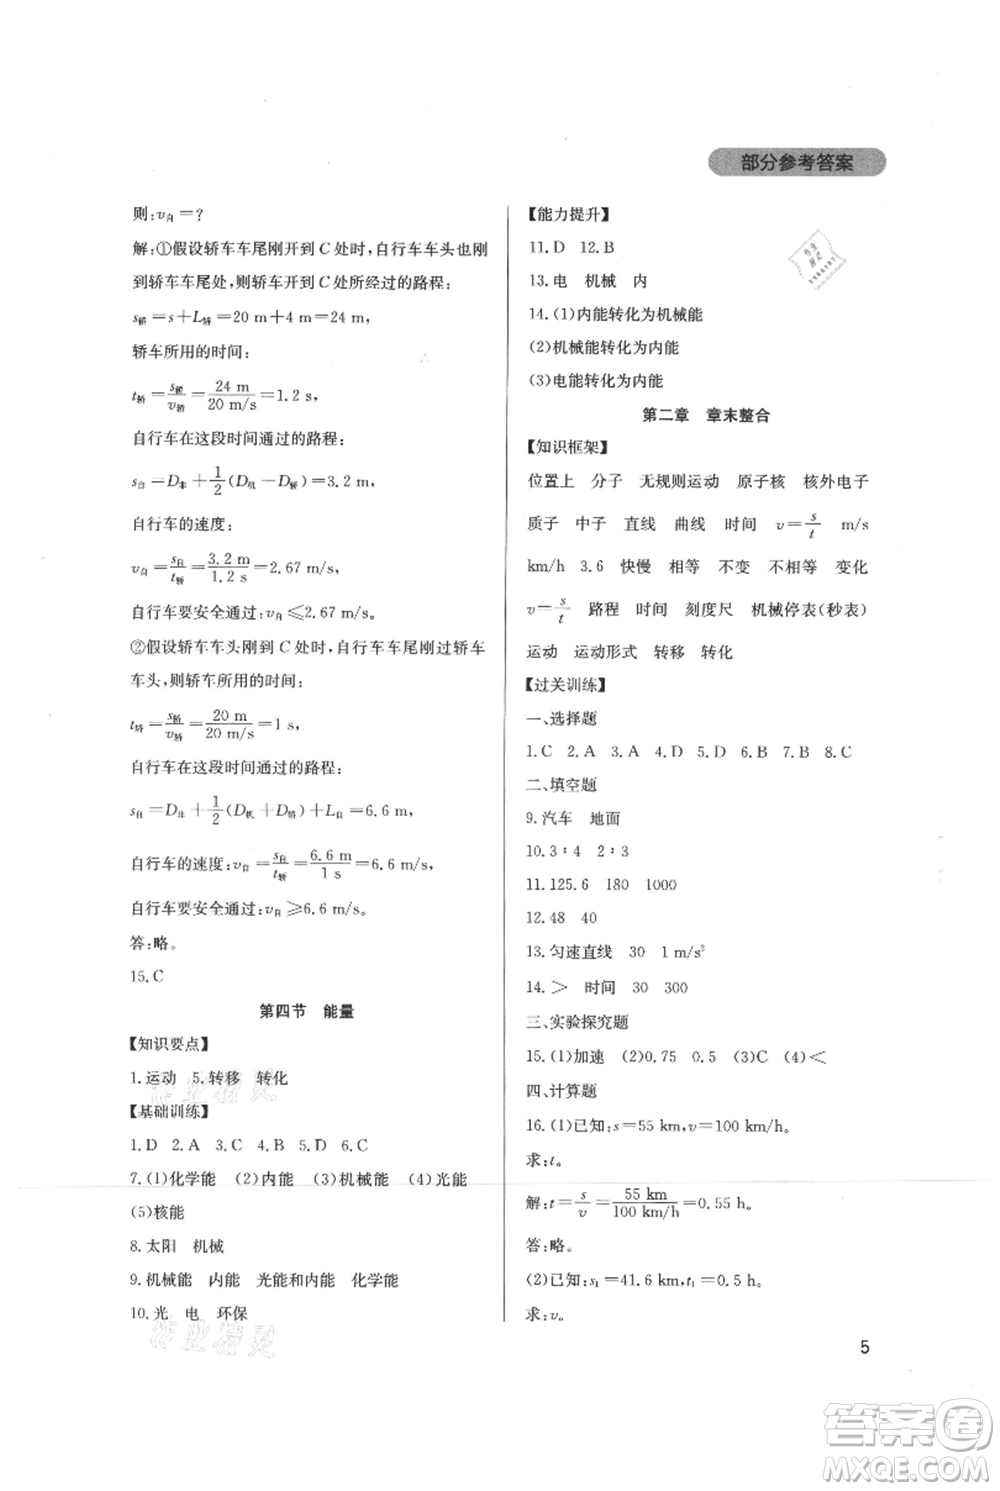 部分参考答案
则:v自=?
解:①假设轿车车尾刚开到C处时,自行车车头也刚
到轿车车尾处,则轿车开到C处通过的路程:
s轿=s+L轿=20 m+4 m=24 m,
轿车所用的时间:
t轿=s轿/v轿=24 m/20 m/s=1.2 s,
自行车在这段时间通过的路程:
s自=D非+1/2(D机-D轿)=3.2 m,
自行车的速度:
v自=s自/t轿=3.2 m/1.2 s=2.67 m/s,
自行车要安全通过:v自≤2.67 m/s,
②假设轿车车头刚到C处时,自行车车尾刚过轿车
车头,则轿车所用的时间:
t轿=s轿/v轿=20 m/20 m/s=1 s,
自行车在这段时间通过的路程:
s自=D非+1/2(D机+D轿)+L自=6.6 m,
自行车的速度:v自=s自/t轿=6.6 m/1 s=6.6 m/s,
自行车要安全通过:v自≥6.6 m/s。
答:略。
15.C
第四节 能量
【知识要点】
1.运动 5.转移 转化
【基础训练】
1.D 2.A 3.C 4.B 5.D 6.C
7.(1)化学能 (2)内能 (3)机械能 (4)光能
(5)核能
8.太阳 机械
9.机械能 内能 光能和内能 化学能
10.光 电 环保
【能力提升】
11.D 12.B
13.电 机械 内
14.(1)内能转化为机械能
(2)机械能转化为内能
(3)电能转化为内能
第二章 章末整合
【知识框架】
位置上 分子 无规则运动 原子核 核外电子
质子 中子 直线 曲线 时间 v=s/t m/s
km/h 3.6 快慢 相等 不变 不相等 变化
v=s/t 路程 时间 刻度尺 机械停表(秒表)
运动 运动形式 转移 转化
【过关训练】
一、选择题
1.C 2.A 3.A 4.D 5.D 6.B 7.B 8.C
二、填空题
9.汽车 地面
10.3∶4 2∶3
11.125.6 180 1000
12.48 40
13.匀速直线 30 1 m/s²
14.> 时间 30 300
三、实验探究题
15.(1)加速 (2)0.75 0.5 (3)C (4)<
四、计算题
16.(1)已知:s=55 km,v=100 km/h。
求:t。
解:t=s/v=55 km/100 km/h=0.55 h。
答:略。
(2)已知:s₁=41.6 km,t₁=0.5 h。
求:v。
5
作业精灵
作业精灵
答案圈
MXQE.COM